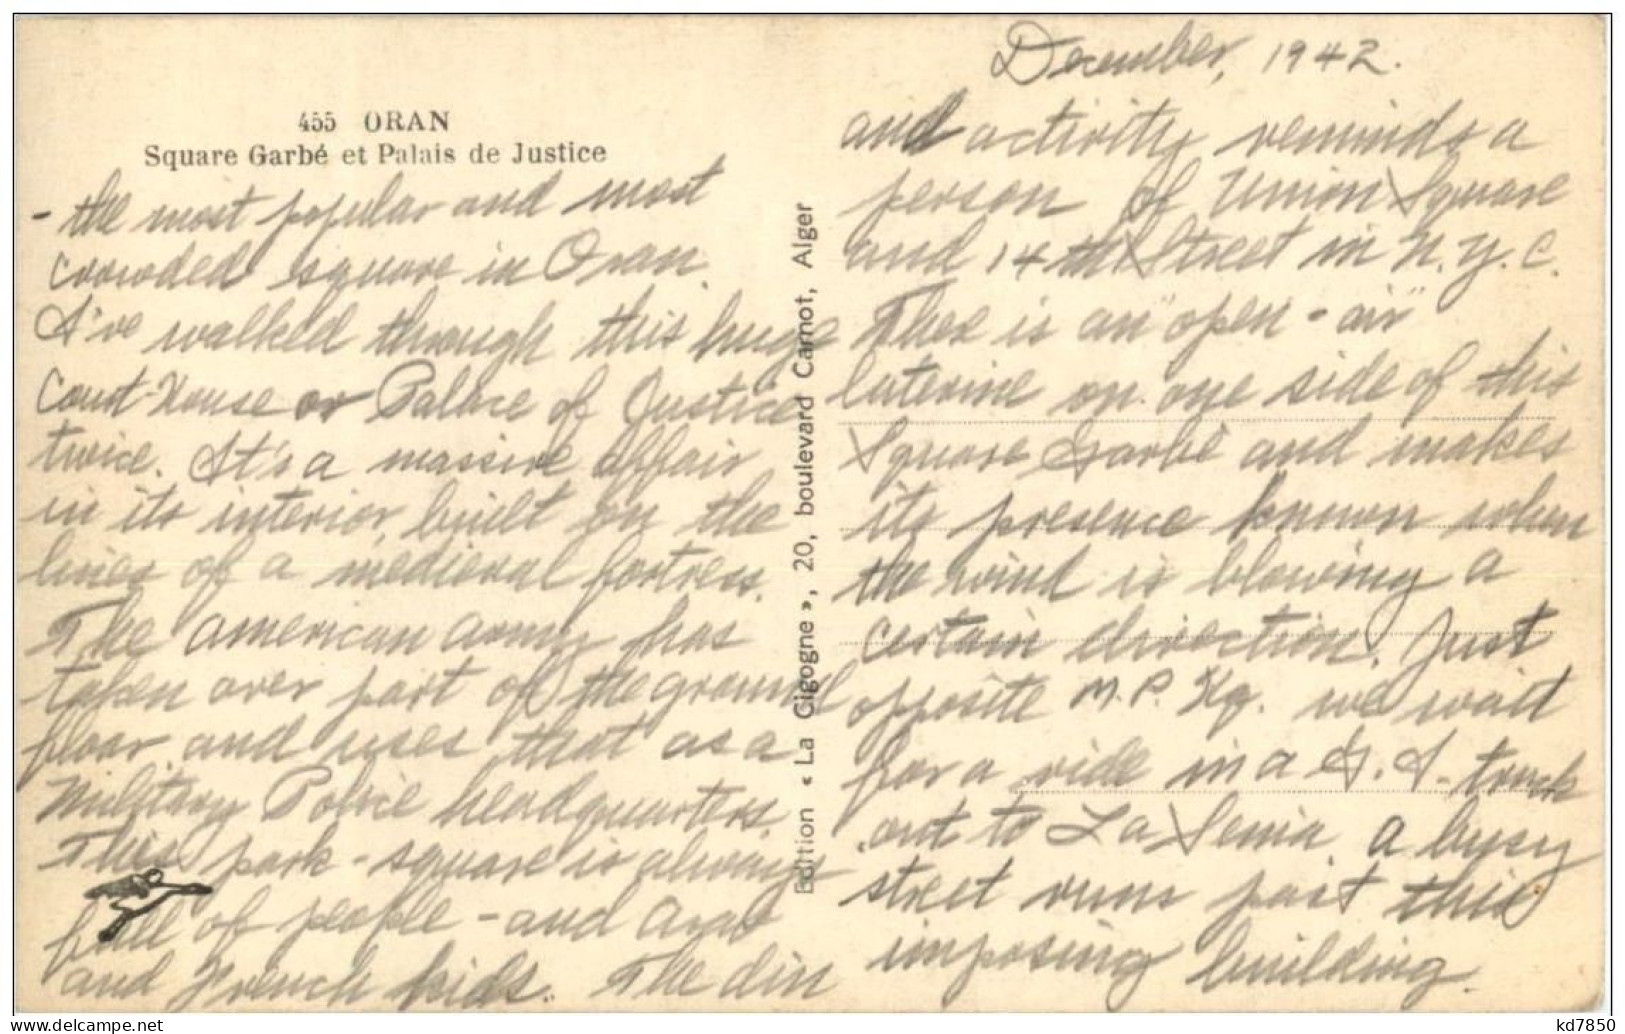 455 ORAN
Square Garbé et Palais de Justice
- the most popular and most
crowded square in Oran.
I've walked through this huge
Court-House or Palace of Justice
twice. It's a massive affair
in its interior, built on the
lines of a medieval fortress.
The American Army has
taken over part of the ground
floor and uses that as a
Military Police headquarters.
This park-square is always
full of people - and Arab
and French kids. The din
Edition « La Cigogne », 20, boulevard Carnot, Alger
December, 1942.
and activity reminds a
person of Union Square
and 14th Street in N.Y.C.
There is an "open-air"
laterine on one side of this
Square Garbé and makes
its presence known when
the wind is blowing a
certain direction. Just
opposite M.P. Hq. we wait
for a ride in a G.I. truck
out to La Senia. A busy
street runs past this
imposing building.
kd7850